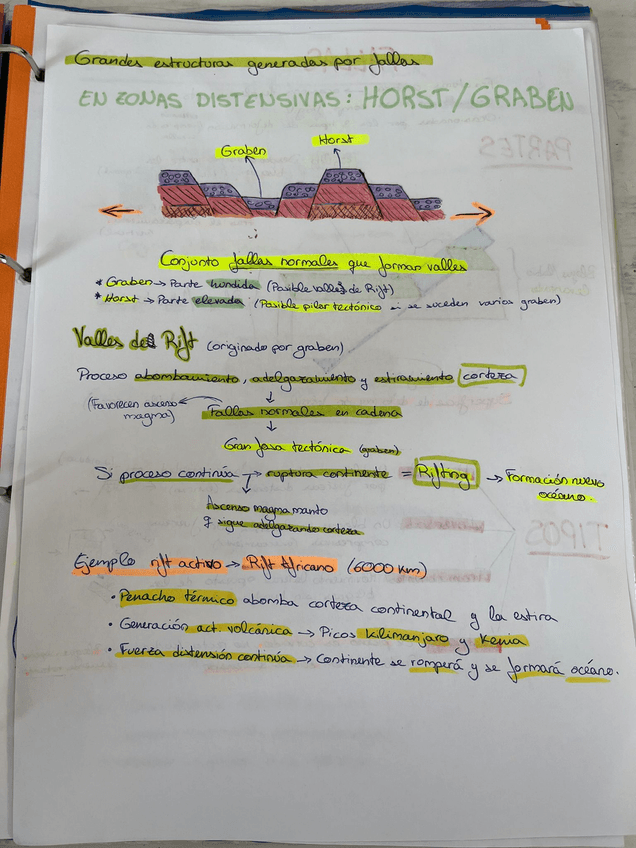 Grandes estructuras generadas por fallas
EN ZONAS DISTENSIVAS: HORST/GRABEN
Graben
Horst
Conjunto fallas normales que forman valles
* Graben → Parte hundida (Posible valles de Rift)
* Horst → Parte elevada (Posible pilar tectónico si se suceden varios graben)
Valles de Rift (originado por graben)
Proceso abombamiento, adelgazamiento y estiramiento corteza
↓
(Favorecen ascenso magma) ← Fallas normales en cadena
↓
Gran fosa tectónica (graben)
Si proceso continúa → ruptura continente = Rifting → Formación nuevo océano.
↓
Ascenso magma manto
y sigue adelgazando corteza
Ejemplo rift activo → Rift Africano (6000 Km)
· Penacho térmico abomba corteza continental y la estira
· Generación act. volcánica → Picos Kilimanjaro y Kenia
· Fuerza distensión continúa → Continente se romperá y se formará océano.
PARTES
TIPOS